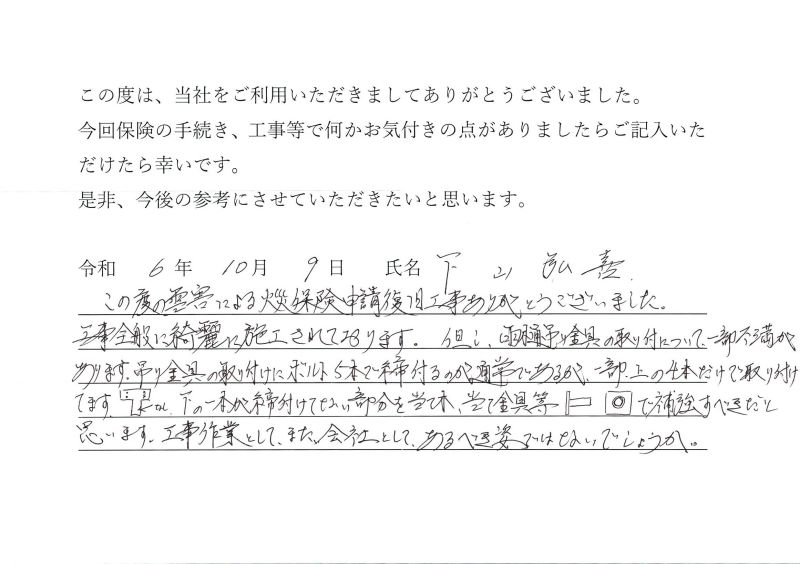 この度は、当社をご利用いただきましてありがとうございました。
今回保険の手続き、工事等で何かお気付きの点がありましたらご記入いた
だけたら幸いです。
是非、今後の参考にさせていただきたいと思います。
令和 6 年 10 月 9 日 氏名 下山 弘喜
この度の雪害による火災保険申請復旧工事ありがとうございました。
工事全般に綺麗に施工されております。但し、雨樋吊り金具の取り付について、一部不満が
あります。吊り金具の取り付けにボルト5本で締付るのが通常であるが、一部、上の4本だけで取り付け
てます。 下の一本が締付けてない部分を当て木、当て金具等 で補強すべきだと
思います。工事作業として、また、会社として、あるべき姿ではないでしょうか。